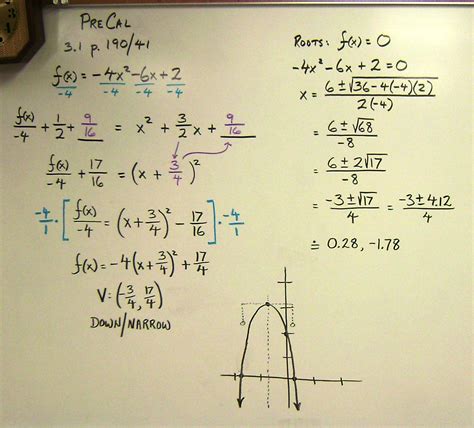 PRECAL
3.1 p. 190/41
f(x) = -4x² - 6x + 2
-4 -4 -4 -4
f(x)/-4 + 1/2 + 9/16 = x² + 3/2 x + 9/16
f(x)/-4 + 17/16 = (x + 3/4)²
-4/1 · [ f(x)/-4 = (x + 3/4)² - 17/16 ] · -4/1
f(x) = -4(x + 3/4)² + 17/4
V = (-3/4, 17/4)
DOWN/NARROW
ROOTS: f(x) = 0
-4x² - 6x + 2 = 0
x = 6 ± √36 - 4(-4)(2) / 2(-4)
= 6 ± √68 / -8
= 6 ± 2√17 / -8
= -3 ± √17 / 4 = -3 ± 4.12 / 4
≐ 0.28, -1.78